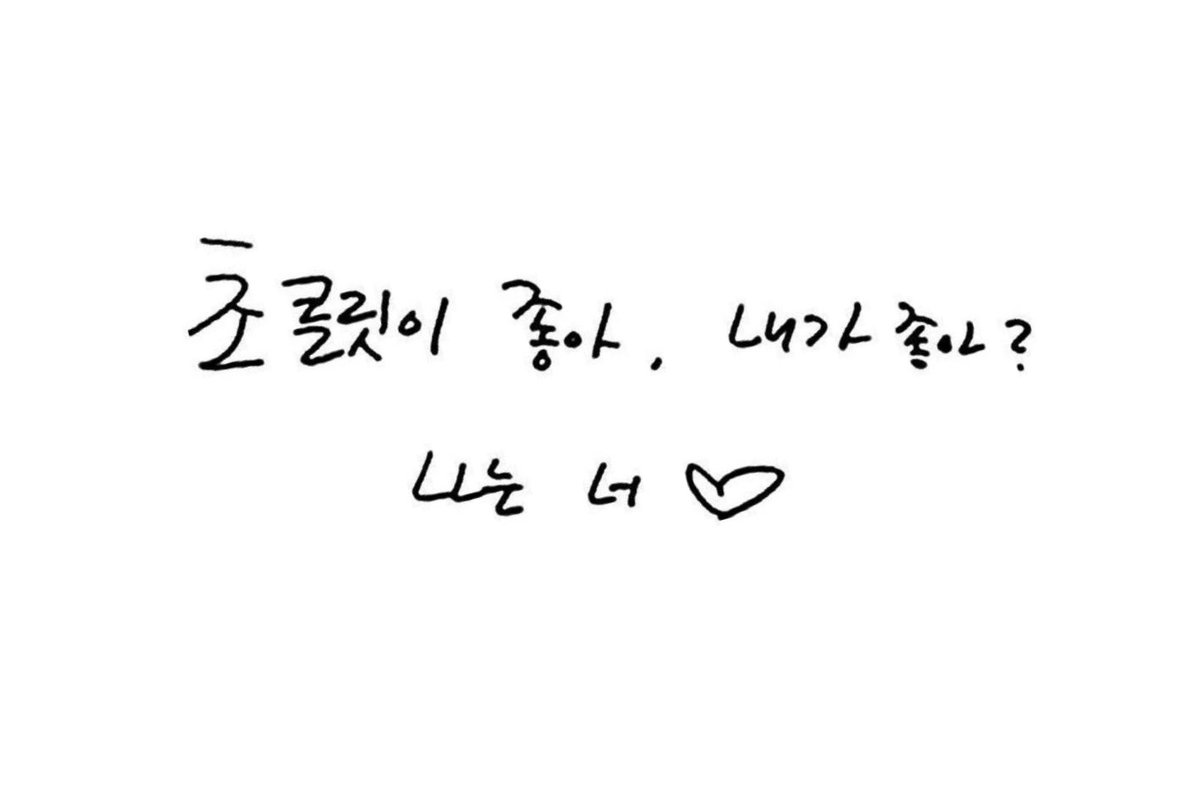 초콜릿이 좋아. 내가 좋아?
나는 너 ♡